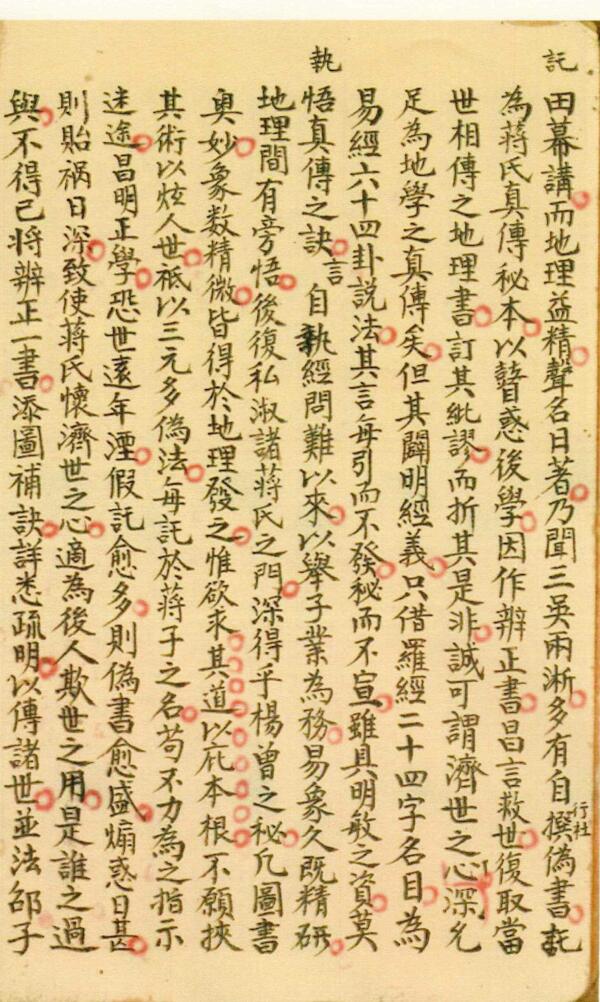 託
田幕講而地理益精聲名日著乃聞三吳兩淅多有自撰偽書託
行社
為蔣氏真傳秘本以瞽惑後學因作辨正書昌言救世復取當
世相傳之地理書訂其紕謬而折其是非誠可謂濟世之心深允
足為地學之真傳矣但其闢明經義只借羅經二十四字名目為
易經六十四卦說法其言每引而不發秘而不宣雖具明敏之資莫
執
悟真傳之訣言自執經問難以來以舉子業為務易象久既精研
地理間有旁悟後復私淑諸蔣氏之門深得乎楊曾之秘凡圖書
奧妙象數精微皆得於地理發之惟欲求其道以庇本根不願挾
其術以炫人世祇以三元多偽法每託於蔣子之名苟不力為之指示
迷途昌明正學恐世遠年湮假託愈多則偽書愈盛煽惑日甚
則貽禍日深致使蔣氏懷濟世之心適為後人欺世之用是誰之過
與不得已將辨正一書添圖補訣詳悉疏明以傳諸世並法邵子